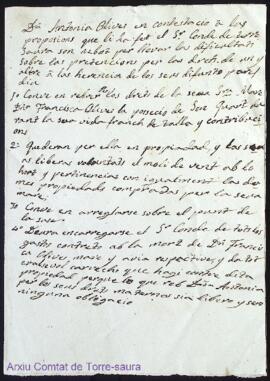 Dña Antonia Olives en contestació à las
proposions que li ha fet el Sr Conde de Torre
Saura son nebot per llevar las dificultats
sobre las pretencions per los drets de vi y
altre à las herencia de los seus difunto pares
dia
1o Conve en rebre los drets de la sua Sra Mare
Dña Francisca Olives la posecio de Son Guart durant
la sua vida franch de talla y contribucions
2o Quedaran per ella en propiedad y las seuas
liberas voluntats el moli de vent ab lo
hort y pertinencias con igualment las demes
propiedads compradas per la seua
mare
3o Conve en arreglarse sobre el punt de
la sua
4o Deura encarregarse el Sr Conde de tots los
gastos contrets ab la mort de Dña Francisca
Olives mare y avia respective, y da tot
qualsevol carrecho que hage contre dita
propiedad perque lo que reb Dña Antonia
per los seus drets maternos sia libero y sens
ninguna obligacio
Arxiu Comtat de Torre-saura